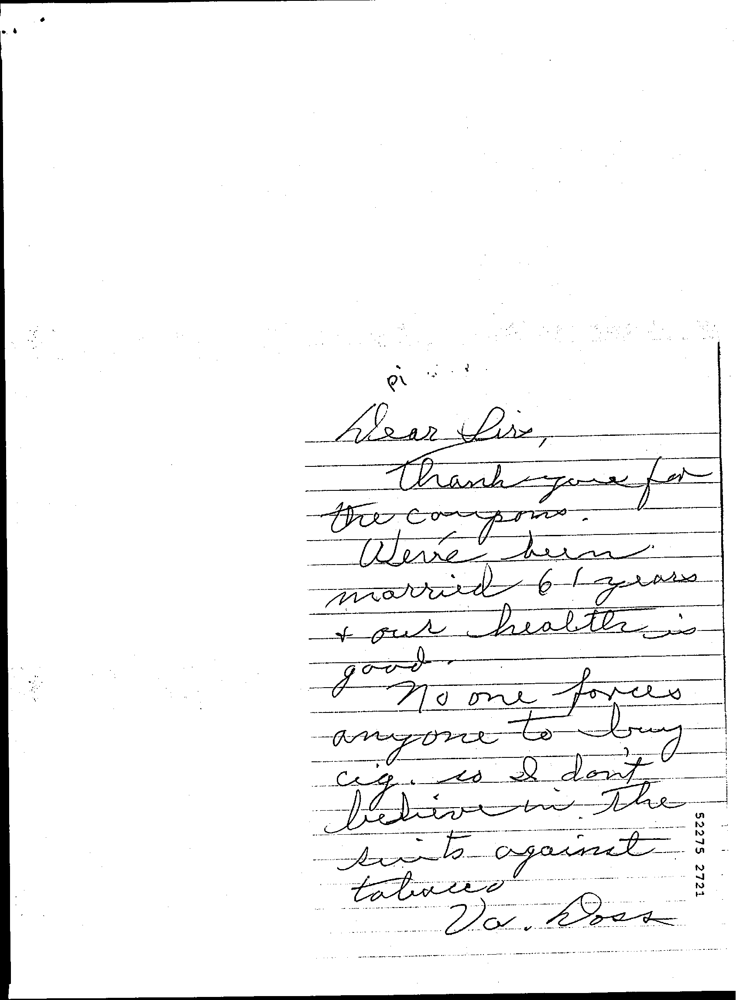 pi
Dear Sir,
Thank you for
the coupons.
We've been
married 61 years
+ our health is
good.
No one forces
anyone to buy
cig. so I don't
believe in the
suits against
tobacco
Va. Doss
52275 2721